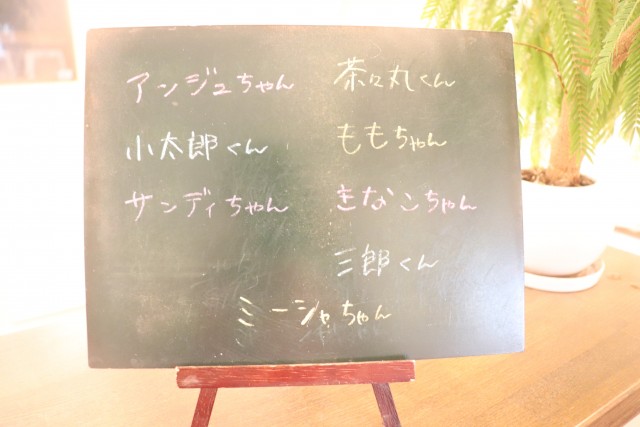 アンジュちゃん
小太郎くん
サンディちゃん
茶々丸くん
ももちゃん
きなこちゃん
三郎くん
ミーシャちゃん